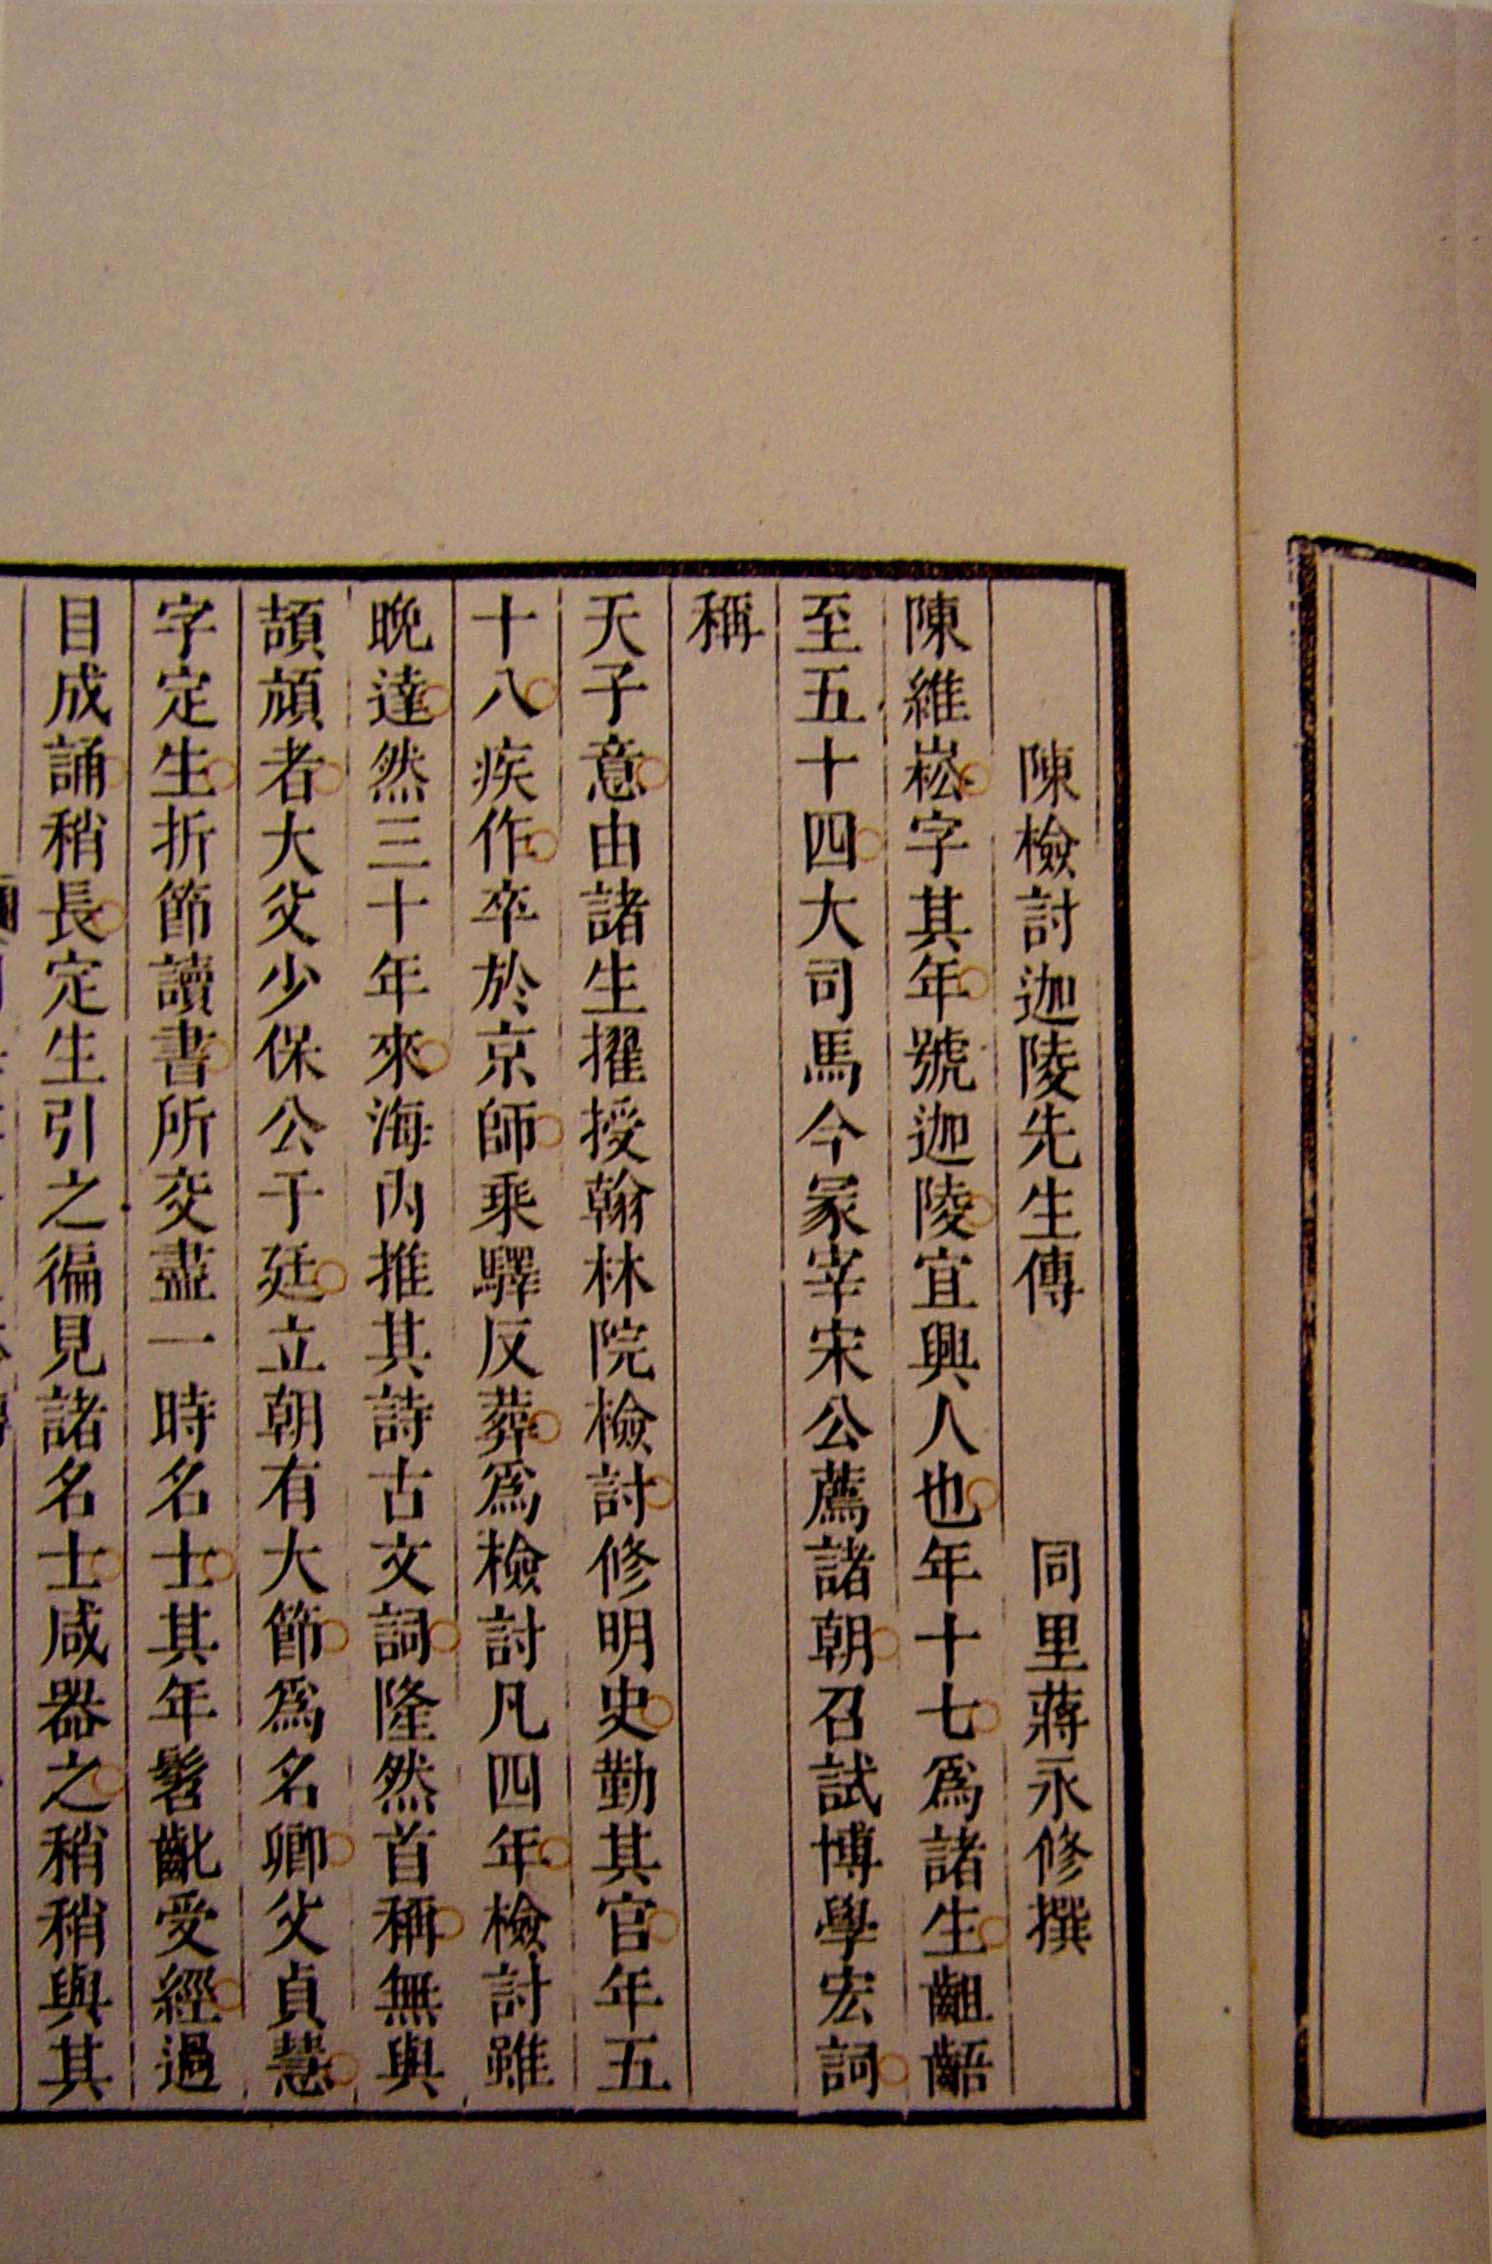 陳檢討迦陵先生傳 同里蔣永修撰
陳維崧字其年號迦陵宜興人也年十七爲諸生齟齬
至五十四大司馬今冢宰宋公薦諸朝召試博學宏詞
稱
天子意由諸生擢授翰林院檢討修明史勤其官年五
十八疾作卒於京師乘驛反葬爲檢討凡四年檢討雖
晚達然三十年來海內推其詩古文詞隆然首稱無與
頡頏者大父少保公于廷立朝有大節爲名卿父貞慧
字定生折節讀書所交盡一時名士其年髫齔受經過
目成誦稍長定生引之徧見諸名士咸器之稍稍與其